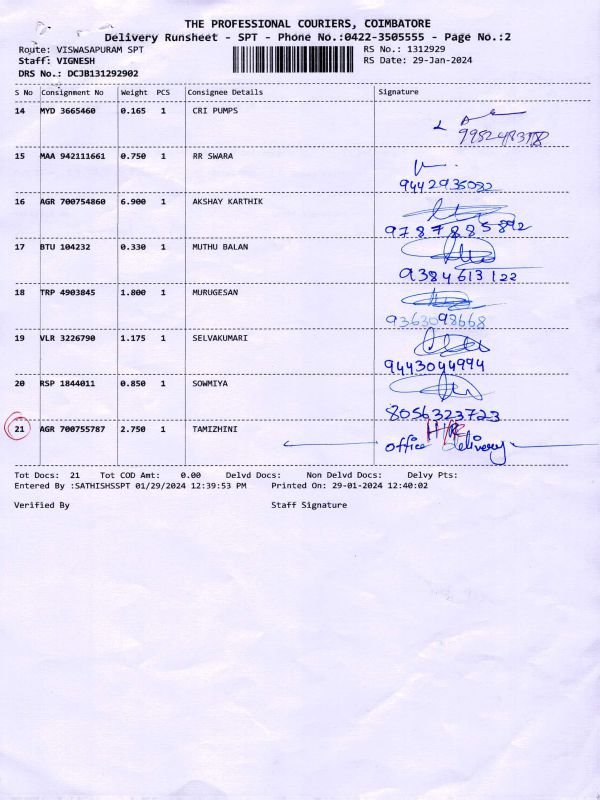 THE PROFESSIONAL COURIERS, COIMBATORE
Delivery Runsheet - SPT - Phone No.:0422-3505555 - Page No.:2
Route: VISWASAPURAM SPT RS No.: 1312929
Staff: VIGNESH RS Date: 29-Jan-2024
DRS No.: DCJB131292902
S No Consignment No Weight PCS Consignee Details Signature
14 MYD 3665460 0.165 1 CRI PUMPS
15 MAA 942111661 0.750 1 RR SWARA
9442935032
16 AGR 700754860 6.900 1 AKSHAY KARTHIK
9787885892
17 BTU 104232 0.330 1 MUTHU BALAN
9384613122
18 TRP 4903845 1.800 1 MURUGESAN
9363098668
19 VLR 3226790 1.175 1 SELVAKUMARI
9443044994
20 RSP 1844011 0.850 1 SOWMIYA
8056323723
21 AGR 700755787 2.750 1 TAMIZHINI
office delivery
Tot Docs: 21 Tot COD Amt: 0.00 Delvd Docs: Non Delvd Docs: Delvy Pts:
Entered By :SATHISHSSPT 01/29/2024 12:39:53 PM Printed On: 29-01-2024 12:40:02
Verified By Staff Signature